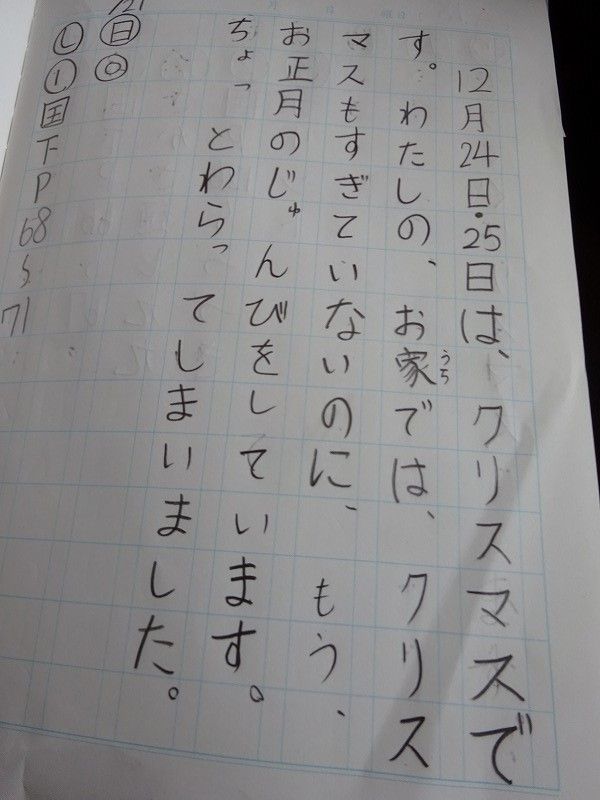 月 日 曜日
12月24日・25日は、クリスマスで
す。わたしの、お家では、クリス
うち
マスもすぎていないのに、もう、
お正月のじゅんびをしています。
ちょっとわらってしまいました。
日◎
し①国下P68〜71